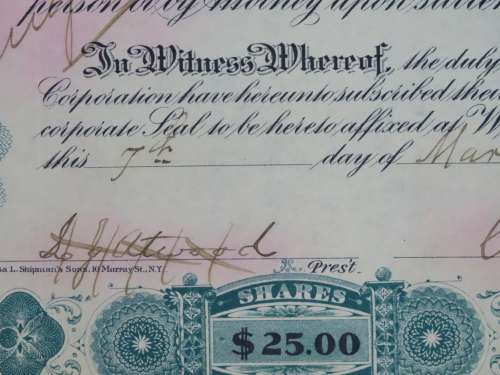 person or by Attorney upon surren
In Witness Whereof, the duly
Corporation have hereunto subscribed thei
corporate Seal to be hereto affixed at W
this 7th day of Mar
Atwood
Pres't.
sa L. Shipman's Sons, 10 Murray St., N.Y.
SHARES
$25.00